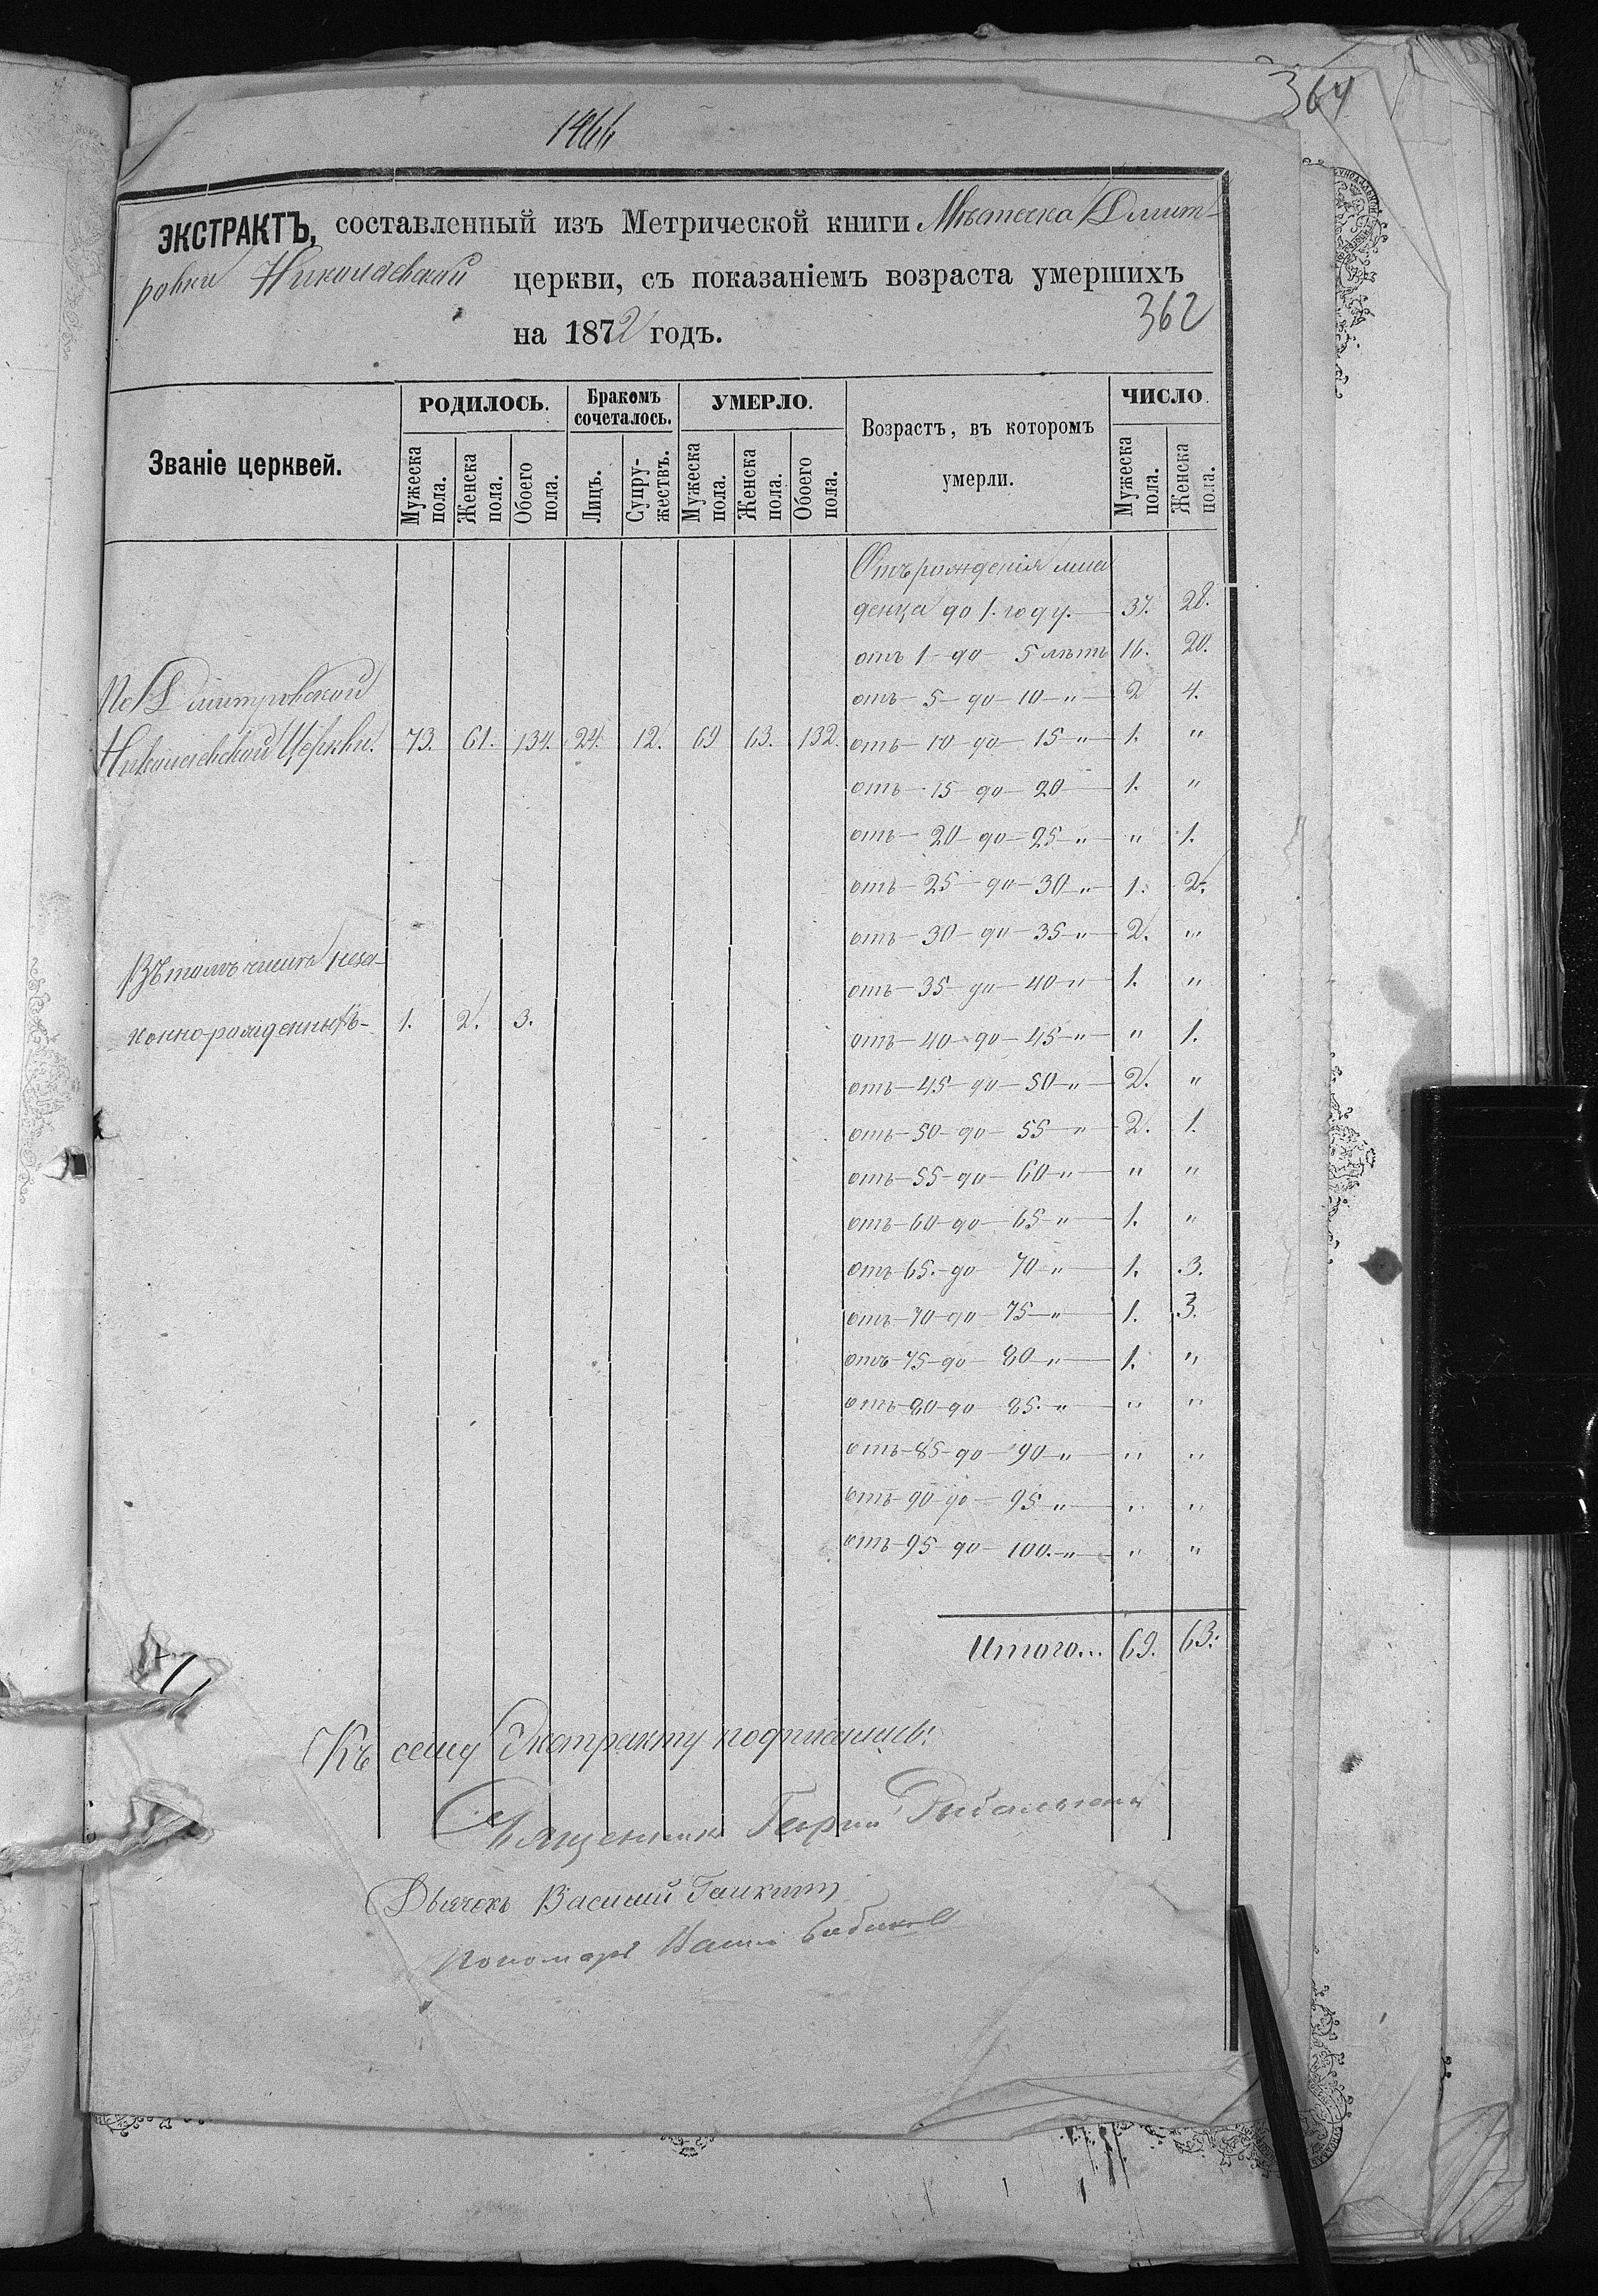 364
1466
ЭКСТРАКТЪ, составленный изъ Метрической книги Мѣстечка Дмит-
ровки Николаевской церкви, съ показаніемъ возраста умершихъ
на 1872 годъ.
362
Званіе церквей.
РОДИЛОСЬ.
Бракомъ сочеталось.
УМЕРЛО.
Возрастъ, въ которомъ умерли.
ЧИСЛО.
Мужеска пола. Женска пола. Обоего пола. Лицъ. Супружествъ. Мужеска пола. Женска пола. Обоего пола. Мужеска пола. Женска пола.
Отъ рожденія мла
денца до 1. году. 37. 28.
отъ 1 до 5 лѣтъ 16. 20.
По Дмитровской
отъ 5 до 10 " 2 4.
Николаевской Церкви. 73. 61. 134. 24. 12. 69 63. 132.
отъ 10 до 15 " 1. "
отъ 15 до 20 1. "
отъ 20 до 25 " " 1.
отъ 25 до 30 " 1. 2.
отъ 30 до 35 " 2. "
Въ томъ числѣ неза-
отъ 35 до 40 " 1. "
коннорожденныхъ- 1. 2. 3.
отъ 40 до 45 " " 1.
отъ 45 до 50 " 2. "
отъ 50 до 55 " 2. 1.
отъ 55 до 60 " " "
отъ 60 до 65 " 1. "
отъ 65. до 70 " 1. 3.
отъ 70 до 75 " 1. 3.
отъ 75 до 80 " 1. "
отъ 80 до 85. " " "
отъ 85 до 90 " " "
отъ 90 до 95 " " "
отъ 95 до 100. " " "
Итого... 69. 63.
Къ сему Экстракту подписались:
Священникъ
Дьячокъ Василий
Пономарь